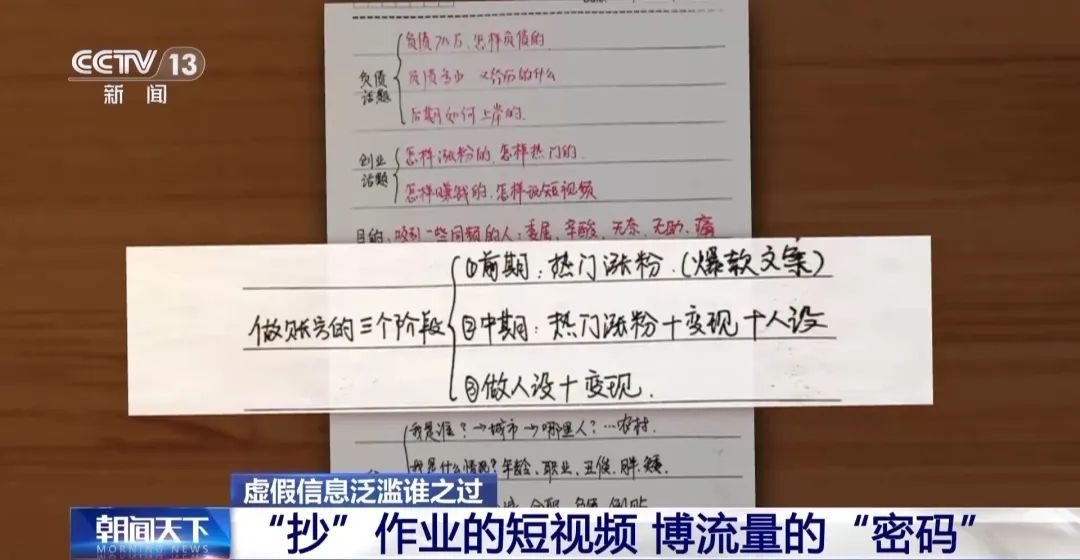 CCTV 13
新闻
负债话题
负债70万、怎样负债的
负债多少 又经历的什么
后期如何上岸的
创业话题
怎样涨粉的、怎样热门的
怎样赚钱的、怎样玩短视频
目的、吸引一些同频的人:委屈、辛酸、无奈、无助、痛
做账号的三个阶段
①前期:热门涨粉.(爆款文案)
②中期:热门涨粉+变现+人设
③做人设+变现.
我是谁?→城市→哪里人?…农村.
我是什么情况?年龄、职业、丑俊、胖、矮.
虚假信息泛滥谁之过
朝闻天下
MORNING NEWS
“抄”作业的短视频 博流量的“密码”